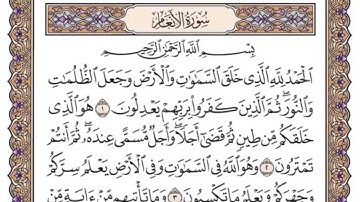 سُورَةُ الأَنْعَامِ
بِسْمِ اللَّهِ الرَّحْمَٰنِ الرَّحِيمِ
الْحَمْدُ لِلَّهِ الَّذِي خَلَقَ السَّمَاوَاتِ وَالْأَرْضَ وَجَعَلَ الظُّلُمَاتِ
وَالنُّورَ ثُمَّ الَّذِينَ كَفَرُوا بِرَبِّهِمْ يَعْدِلُونَ ١ هُوَ الَّذِي
خَلَقَكُم مِّن طِينٍ ثُمَّ قَضَىٰ أَجَلًا وَأَجَلٌ مُّسَمًّى عِندَهُ ثُمَّ أَنتُمْ
تَمْتَرُونَ ٢ وَهُوَ اللَّهُ فِي السَّمَاوَاتِ وَفِي الْأَرْضِ يَعْلَمُ سِرَّكُمْ
وَجَهْرَكُمْ وَيَعْلَمُ مَا تَكْسِبُونَ ٣ وَمَا تَأْتِيهِم مِّنْ ءَايَةٍ مِّنْ